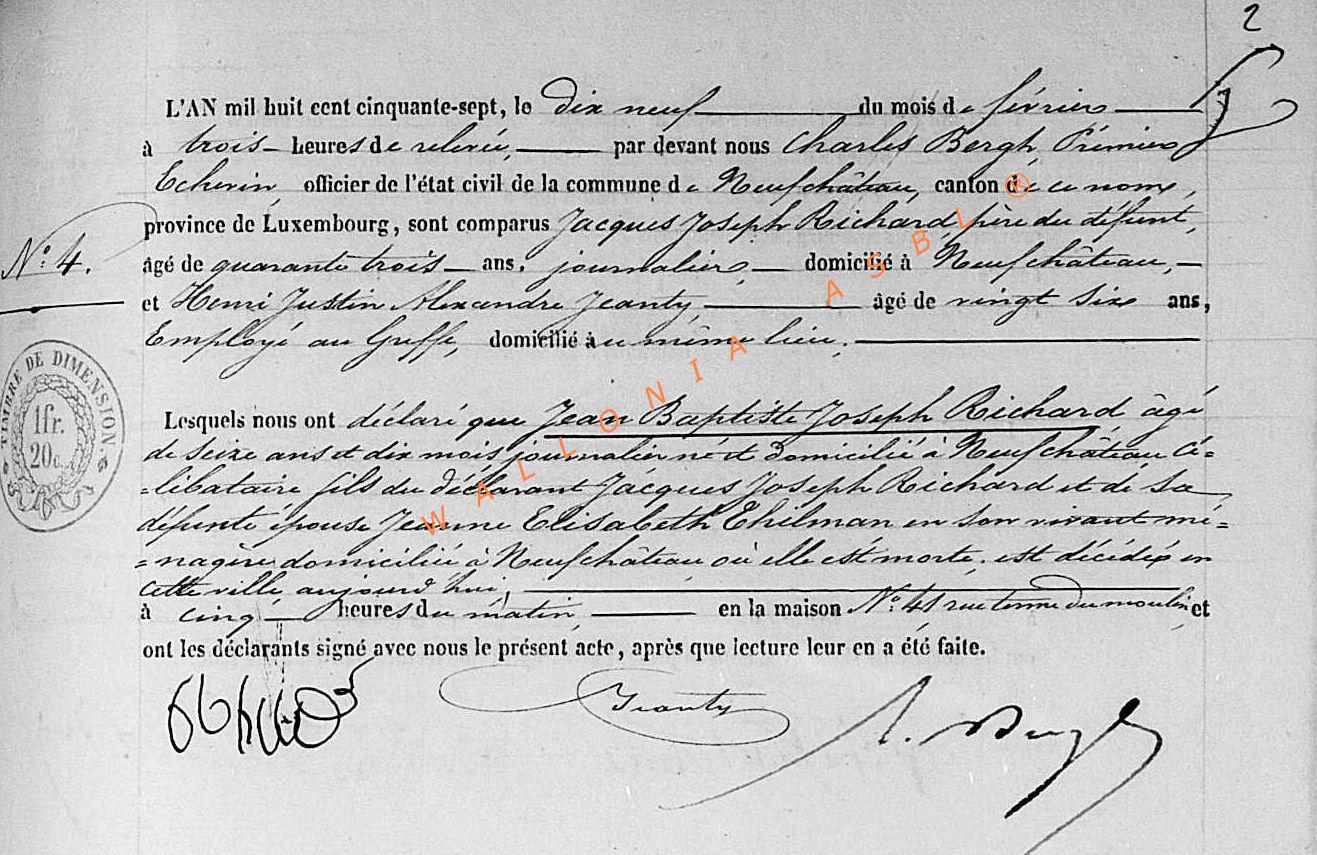 2
L'AN mil huit cent cinquante-sept, le dix neuf du mois de février
à trois heures de relevée, par devant nous Charles Bergh, Prémier
Echevin officier de l'état civil de la commune de Neufchâteau, canton de ce nom,
province de Luxembourg, sont comparus Jacques Joseph Richard, père du défunt,
N° 4.
âgé de quarante trois ans, journalier, domicilié à Neufchâteau,
et Henri Justin Alexandre Jeanty, âgé de vingt six ans,
Employé au Greffe, domicilié au même lieu,
TIMBRE DE DIMENSION
1 fr.
20 c.
Lesquels nous ont déclaré que Jean Baptiste Joseph Richard âgé
de seize ans et dix mois journalier né et domicilié à Neufchâteau cé=
=libataire fils du déclarant Jacques Joseph Richard et de sa
défunte épouse Jeanne Elisabeth Thilman en son vivant mé=
=nagère domiciliée à Neufchâteau où elle est morte, est décédé en
cette ville aujourd'hui,
à cinq heures du matin, en la maison N° 41 rue terme du moulin, et
ont les déclarants signé avec nous le présent acte, après que lecture leur en a été faite.
Jeanty
WALLONIA ASBL ®